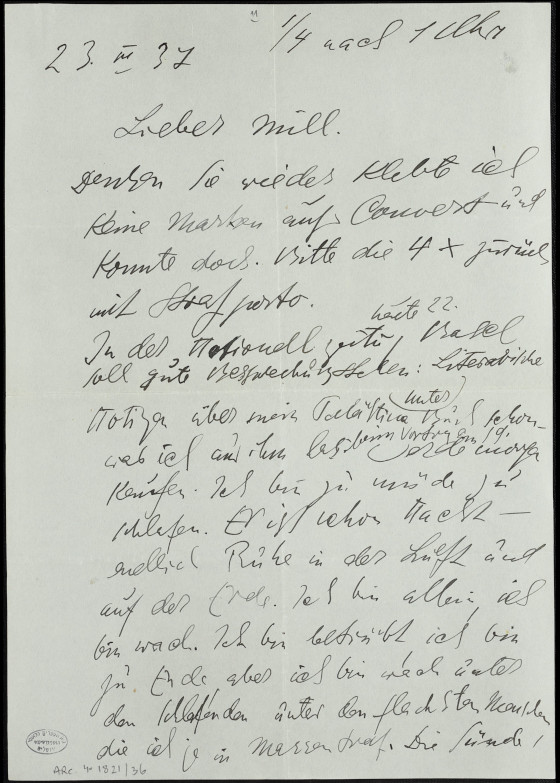 11
1/4 nach 1 Uhr
23. III 37
Lieber Mill.
Denken Sie wieder klebte ich
keine Marken aufs Couvert und
konnte doch. Bitte die 4 x zurück
mit Strafporto.
heute 22.
In der Nationalzeitu, Basel
soll gute Besprechung stehen: Literarische
(unter)
Notizen über mein Palästina Buch schon
was ich aus ihm las beim Vortrag am 19.
werde morgen
kaufen. Ich bin zu müde zu
schlafen. Er ist schon Nacht —
endlich Ruhe in der Luft und
auf der Erde. Ich bin allein, ich
bin wach. Ich bin betrübt ich bin
zu Ende aber ich bin wach unter
den Schlafenden unter den flachsten Menschen
die ich je in Massen traf. Die Sünde,
ARC. 4° 1821/36